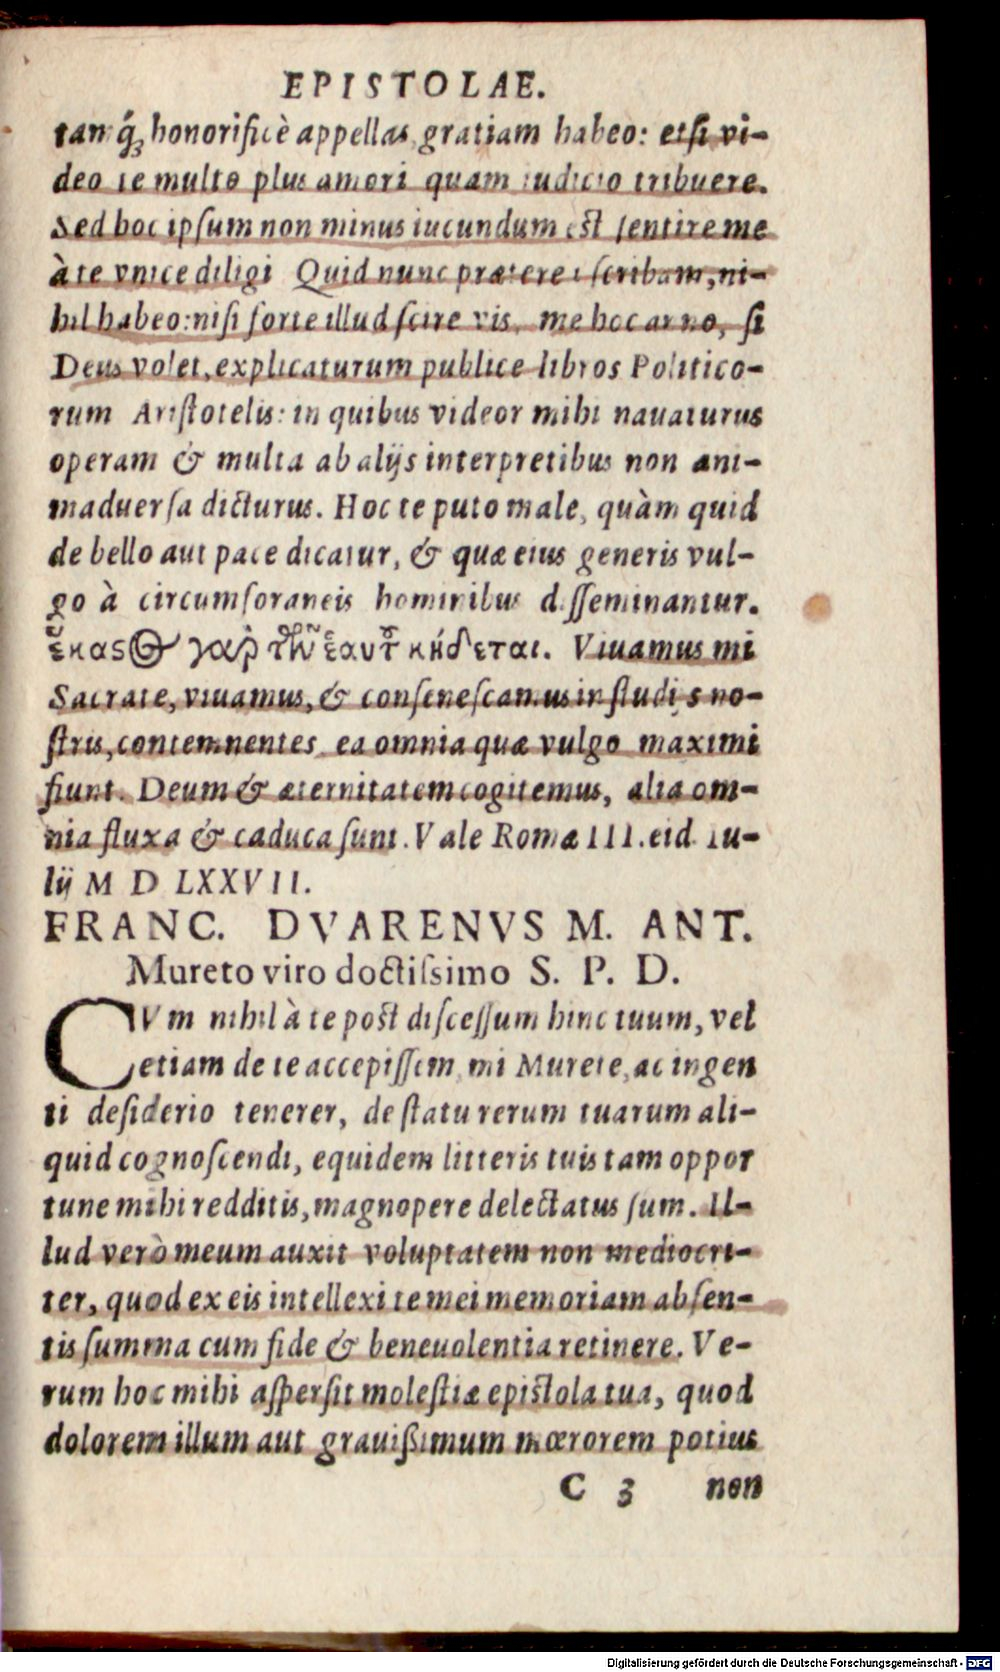 EPISTOLAE.
tamq́ꝫ honorificè appellas gratiam habeo: etsi vi-
deo te multo plus amori quam iudicio tribuere.
Sed hoc ipſum non minus iucundum est ſentire me
à te vnice diligi Quid nunc præterea ſcribam, ni-
hil habeo: niſi forte illud ſcire vis, me hoc anno, ſi
Deus volet, explicaturum publice libros Politico-
rum Ariſtotelis: in quibus videor mihi nauaturus
operam & multa ab alijs interpretibus non ani-
maduerſa dicturus. Hoc te puto male, quàm quid
de bello aut pace dicatur, & quæ eius generis vul-
go à circumforaneis hominibus diſſeminantur.
ἕκαςος γαρ̀ τῶν ἑαυτοῦ κήδεται. Viuamus mi
Sacrate, viuamus, & conſeneſcamus in ſtudijs no-
ſtris, contemnentes ea omnia quæ vulgo maximi
fiunt. Deum & æternitatem cogitemus, alia om-
nia fluxa & caduca ſunt. Vale Romæ III. eid. Iu-
lij M D LXXVII.
FRANC. DVARENVS M. ANT.
Mureto viro doctiſsimo S. P. D.
CVm nihil à te post diſceſſum hinc tuum, vel
etiam de te accepiſſem, mi Murete, ac ingen
ti deſiderio tenerer, de ſtatu rerum tuarum ali-
quid cognoſcendi, equidem litteris tuis tam oppor
tune mihi redditis, magnopere delectatus ſum. Il-
lud verò meum auxit voluptatem non mediocri-
ter, quod ex eis intellexi te mei memoriam abſen-
tis ſumma cum fide & beneuolentia retinere. Ve-
rum hoc mihi aſperſit moleſtiæ epistola tua, quod
dolorem illum aut grauißimum mœrorem potius
C 3 non
Digitalisierung gefördert durch die Deutsche Forschungsgemeinschaft - DFG